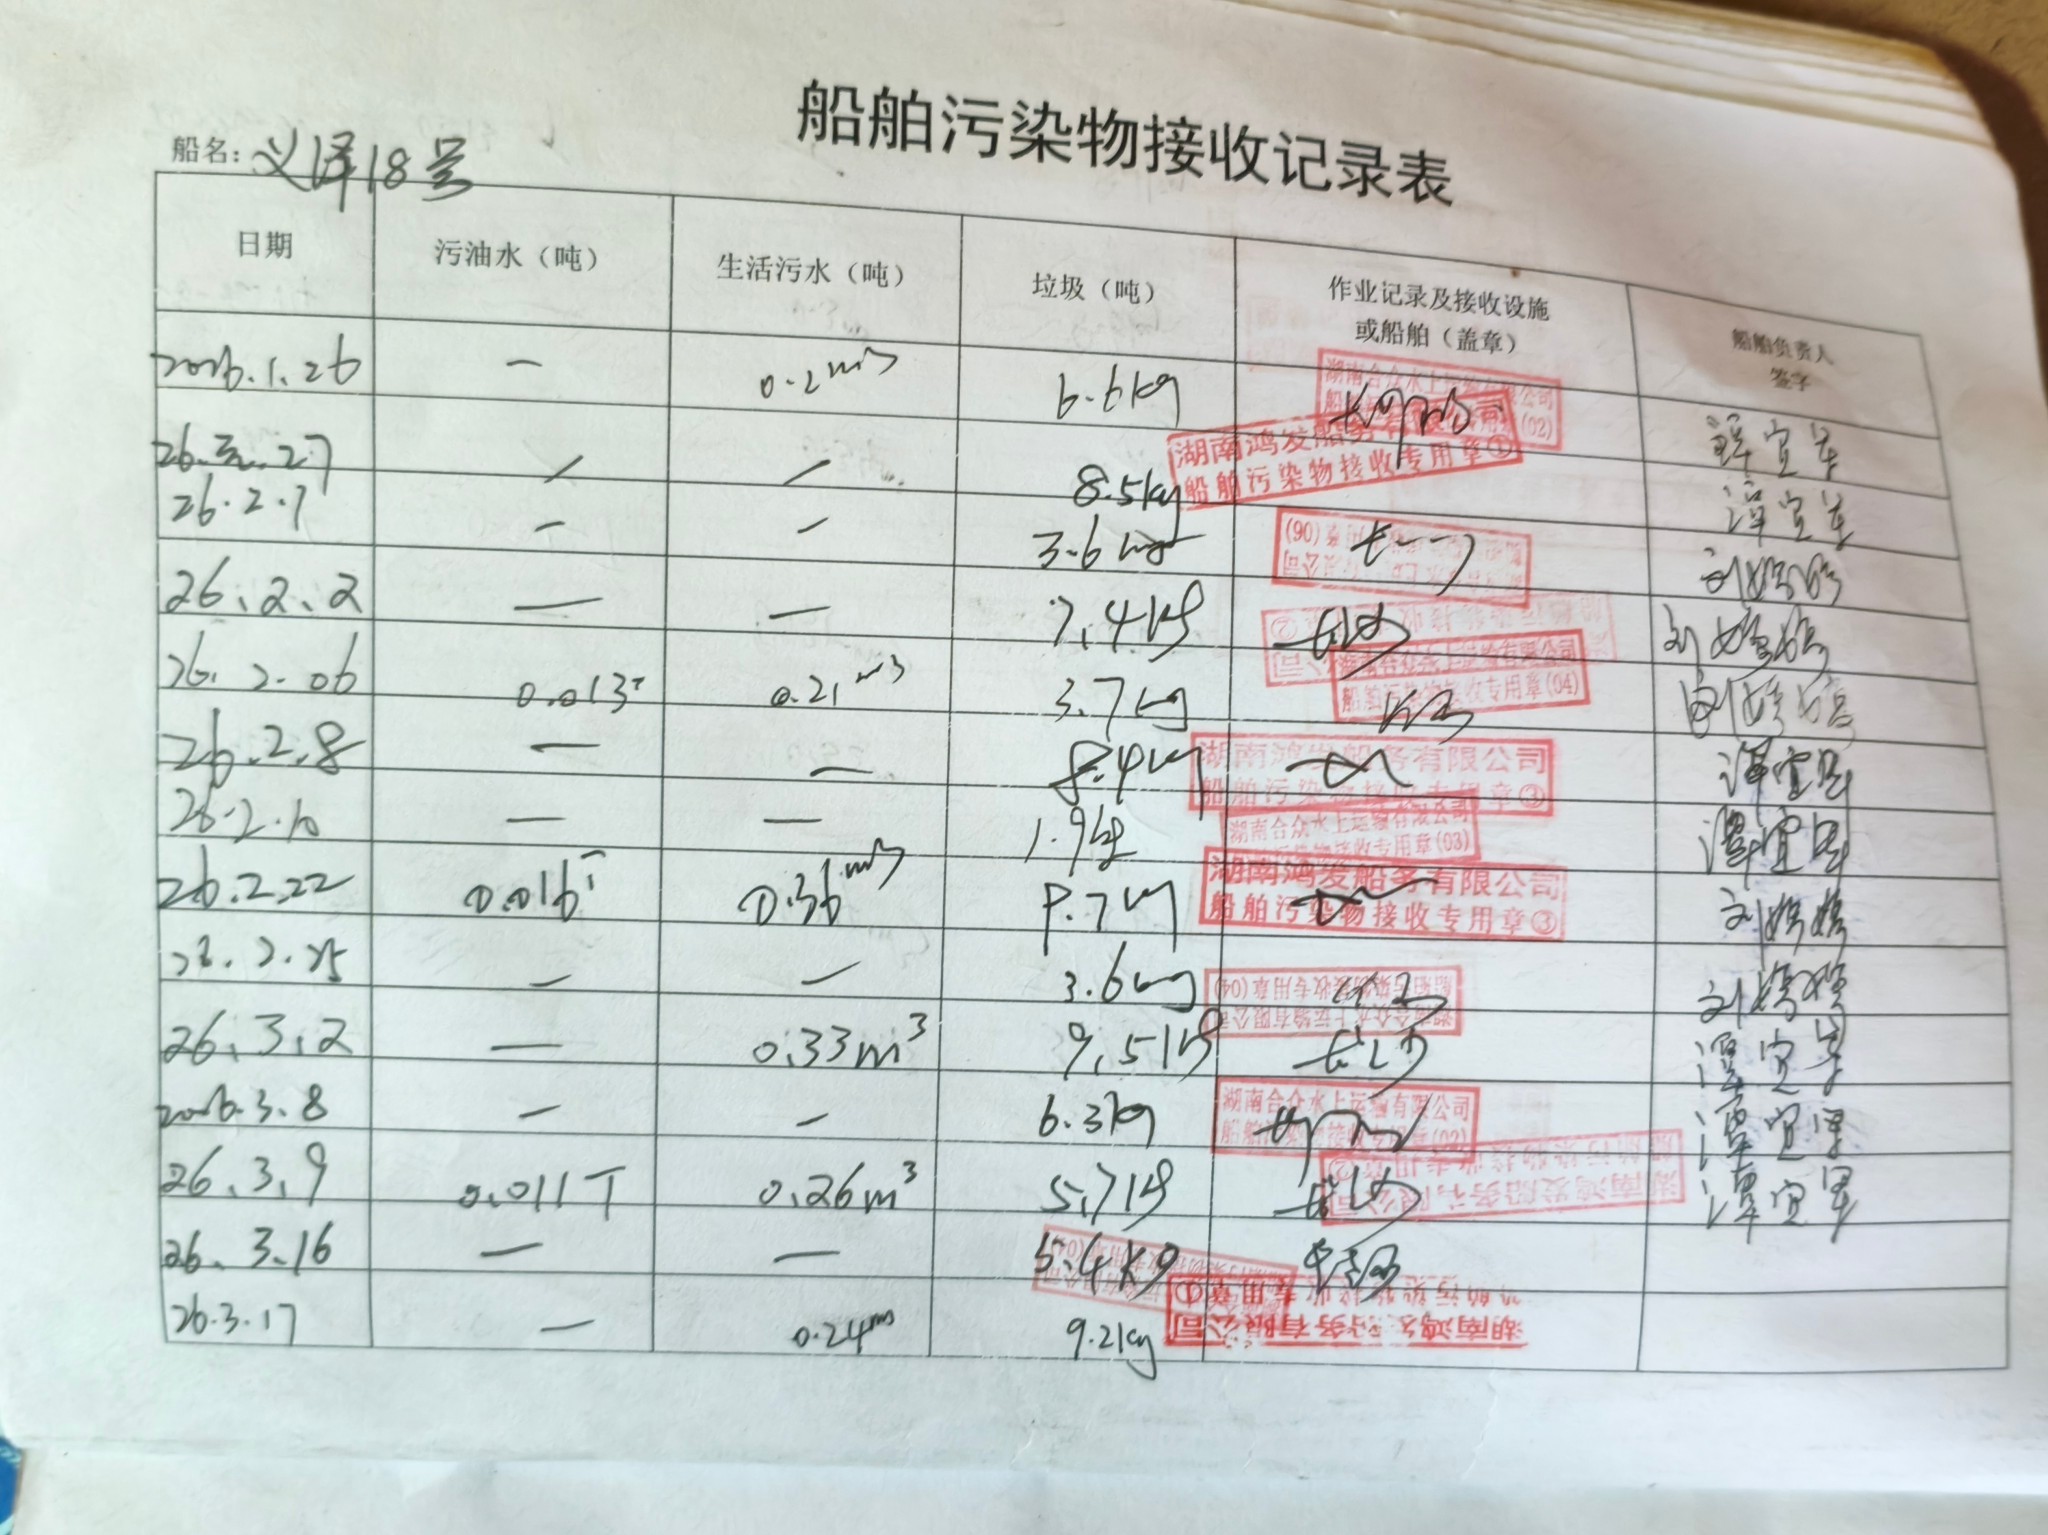 船舶污染物接收记录表
船名：义泽18号
日期 污油水（吨） 生活污水（吨） 垃圾（吨） 作业记录及接收设施或船舶（盖章） 船舶负责人签字
2026.1.26 — 0.2m³ 6.6kg 湖南合众水上运输有限公司 (02) 谭宜军
26.2.27 / / 8.5kg 湖南鸿发船务有限公司 船舶污染物接收专用章① 谭宜军
26.2.1 — — 3.6kg 刘嫦嫦
26.2.2 — — 7.4kg 长沙 刘嫦嫦
26.2.06 0.013T 0.21m³ 3.7kg 湖南合众水上运输有限公司 船舶污染物接收专用章(04) 刘嫦嫦
26.2.8 — — 8.4kg 湖南鸿发船务有限公司 船舶污染物接收专用章③ 谭宜军
26.2.10 — — 1.9kg 湖南合众水上运输有限公司 船舶污染物接收专用章(03) 谭宜军
26.2.22 0.016T 0.36m³ 9.7kg 湖南鸿发船务有限公司 船舶污染物接收专用章③ 刘嫦嫦
26.2.25 — — 3.6kg 湖南合众水上运输有限公司 船舶污染物接收专用章(04) 刘嫦嫦
26.3.2 — 0.33m³ 9.5kg 长沙 谭宜军
2026.3.8 — — 6.3kg 湖南合众水上运输有限公司 船舶污染物接收专用章(02) 谭宜军
26.3.9 0.011T 0.26m³ 5.7kg 长沙 湖南鸿发船务有限公司 船舶污染物接收专用章② 谭宜军
26.3.16 — — 5.4kg
26.3.17 — 0.24m 9.2kg 湖南鸿发船务有限公司 船舶污染物接收专用章①